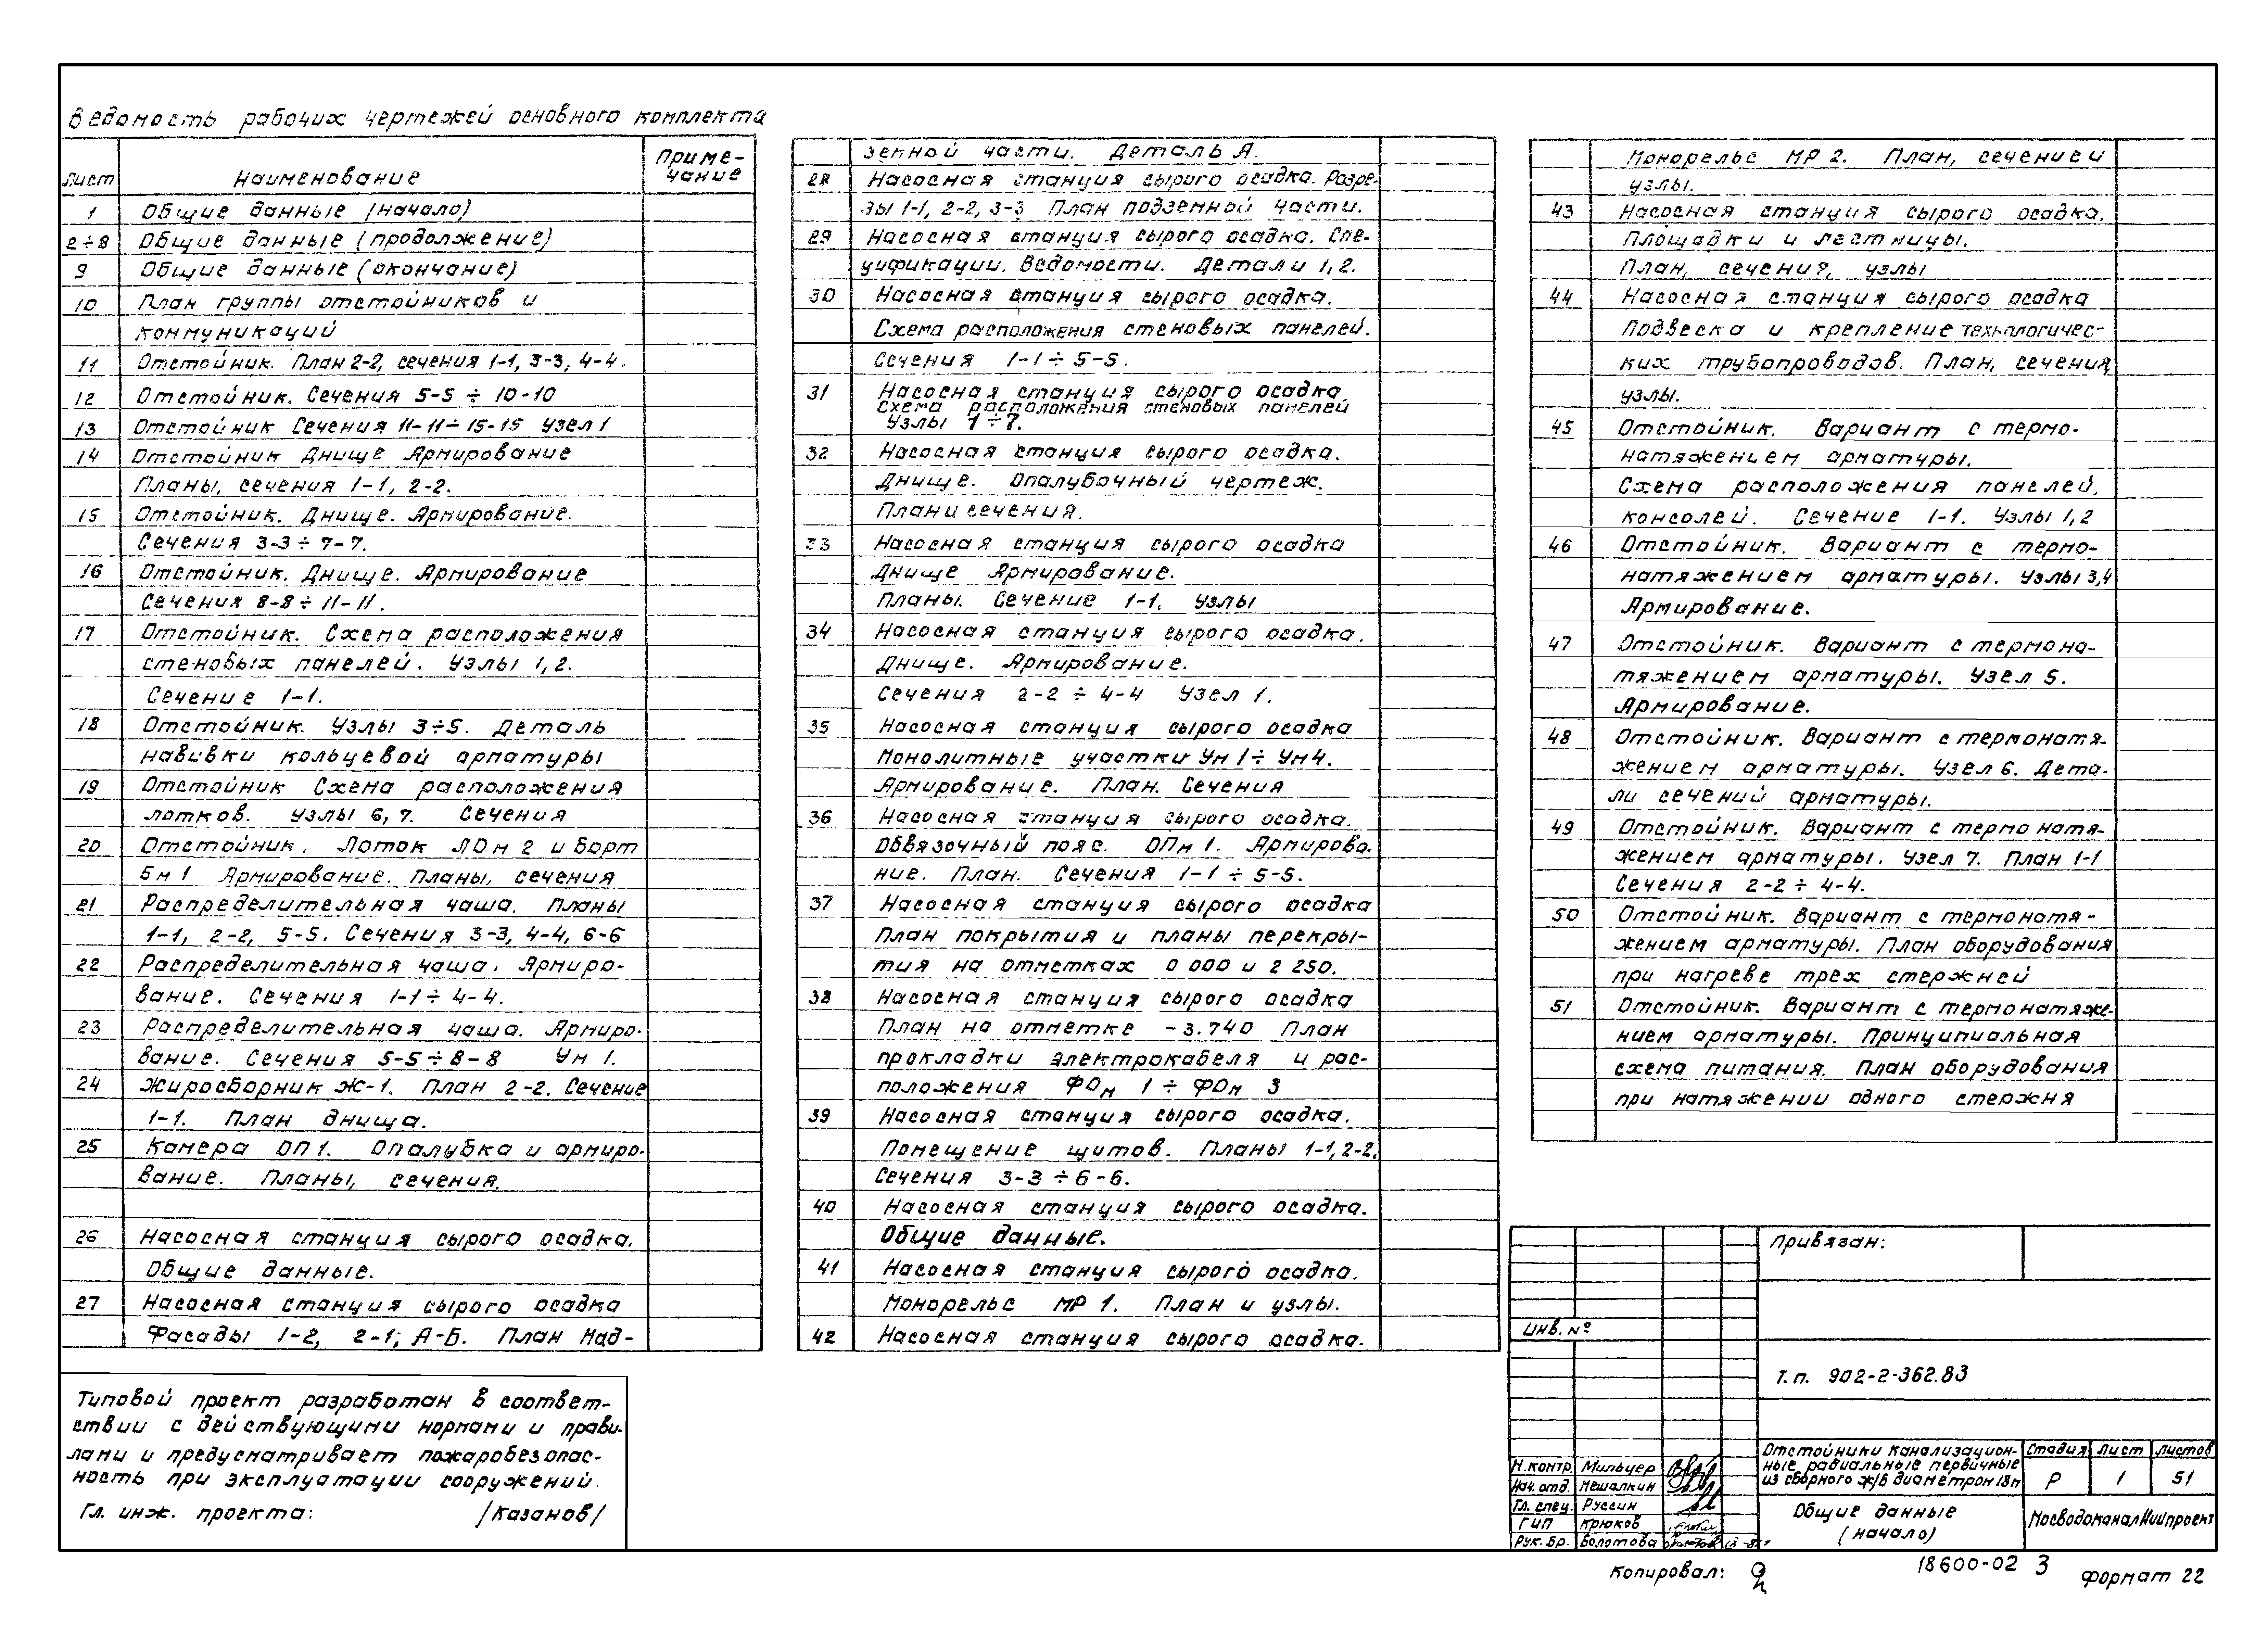 Ведомость рабочих чертежей основного комплекта
Лист Наименование Приме-
чание
1 Общие данные (начало)
2÷8 Общие данные (продолжение)
9 Общие данные (окончание)
10 План группы отстойников и
коммуникаций
11 Отстойник. План 2-2, сечения 1-1, 3-3, 4-4.
12 Отстойник. Сечения 5-5 ÷ 10-10
13 Отстойник Сечения 11-11÷15-15 Узел 1
14 Отстойник Днище Армирование
Планы, сечения 1-1, 2-2.
15 Отстойник. Днище. Армирование.
Сечения 3-3 ÷ 7-7.
16 Отстойник. Днище. Армирование
Сечения 8-8 ÷ 11-11.
17 Отстойник. Схема расположения
стеновых панелей. Узлы 1, 2.
Сечение 1-1.
18 Отстойник. Узлы 3÷5. Деталь
навивки кольцевой арматуры
19 Отстойник Схема расположения
лотков. Узлы 6, 7. Сечения
20 Отстойник. Лоток ЛОм 2 и борт
Бм 1 Армирование. Планы, сечения
21 Распределительная чаша. Планы
1-1, 2-2, 5-5. Сечения 3-3, 4-4, 6-6
22 Распределительная чаша. Армиро-
вание. Сечения 1-1 ÷ 4-4.
23 Распределительная чаша. Армиро-
вание. Сечения 5-5 ÷ 8-8 Ум 1.
24 Жиросборник Ж-1. План 2-2. Сечение
1-1. План днища.
25 Камера ОП 1. Опалубка и армиро-
вание. Планы, сечения.
26 Насосная станция сырого осадка.
Общие данные.
27 Насосная станция сырого осадка
Фасады 1-2, 2-1; А-Б. План Над-
земной части. Деталь А.
28 Насосная станция сырого осадка. Разре-
зы 1-1, 2-2, 3-3 План подземной части.
29 Насосная станция сырого осадка. Спе-
цификации. Ведомости. Детали 1, 2.
30 Насосная станция сырого осадка.
Схема расположения стеновых панелей.
Сечения 1-1 ÷ 5-5.
31 Насосная станция сырого осадка.
Схема расположения стеновых панелей
Узлы 1 ÷ 7.
32 Насосная станция сырого осадка.
Днище. Опалубочный чертеж.
План и сечения.
33 Насосная станция сырого осадка
Днище Армирование.
Планы. Сечение 1-1. Узлы
34 Насосная станция сырого осадка.
Днище. Армирование.
Сечения 2-2 ÷ 4-4 Узел 1.
35 Насосная станция сырого осадка
Монолитные участки Ум 1 ÷ Ум 4.
Армирование. План. Сечения
36 Насосная станция сырого осадка.
Обвязочный пояс. ОПм 1. Армирова-
ние. План. Сечения 1-1 ÷ 5-5.
37 Насосная станция сырого осадка
План покрытия и планы перекры-
тия на отметках 0 000 и 2 250.
38 Насосная станция сырого осадка
План на отметке -3.740 План
прокладки электрокабеля и рас-
положения ФОм 1 ÷ ФОм 3
39 Насосная станция сырого осадка.
Помещение щитов. Планы 1-1, 2-2.
Сечения 3-3 ÷ 6-6.
40 Насосная станция сырого осадка.
Общие данные.
41 Насосная станция сырого осадка.
Монорельс МР 1. План и узлы.
42 Насосная станция сырого осадка.
Монорельс МР 2. План, сечение и
узлы.
43 Насосная станция сырого осадка.
Площадки и лестницы.
План, сечения, узлы
44 Насосная станция сырого осадка
Подвеска и крепление технологичес-
ких трубопроводов. План, сечения,
узлы.
45 Отстойник. Вариант с термо-
натяжением арматуры.
Схема расположения панелей,
консолей. Сечение 1-1. Узлы 1, 2
46 Отстойник. Вариант с термо-
натяжением арматуры. Узлы 3, 4
Армирование.
47 Отстойник. Вариант с термона-
тяжением арматуры. Узел 5.
Армирование.
48 Отстойник. Вариант с термонатя-
жением арматуры. Узел 6. Дета-
ли сечений арматуры.
49 Отстойник. Вариант с термонатя-
жением арматуры. Узел 7. План 1-1
Сечения 2-2 ÷ 4-4.
50 Отстойник. Вариант с термонатя-
жением арматуры. План оборудования
при нагреве трех стержней
51 Отстойник. Вариант с термонатяже-
нием арматуры. Принципиальная
схема питания. План оборудования
при натяжении одного стержня
Типовой проект разработан в соответ-
ствии с действующими нормами и прави-
лами и предусматривает пожаробезопас-
ность при эксплуатации сооружений.
Гл. инж. проекта: /Казанов/
Привязан:
Инв. №
Т.п. 902-2-362.83
Отстойники канализацион-
ные радиальные первичные
из сборного ж/б диаметром 18м
Стадия Лист Листов
Р 1 51
Н.контр. Мильцер
Нач. отд. Мешалкин
Гл. спец. Руссин
ГИП Крюков
Рук. бр. Болотова
Общие данные
(начало)
МосводоканалНИИпроект
Копировал:
18600-02 3
Формат 22